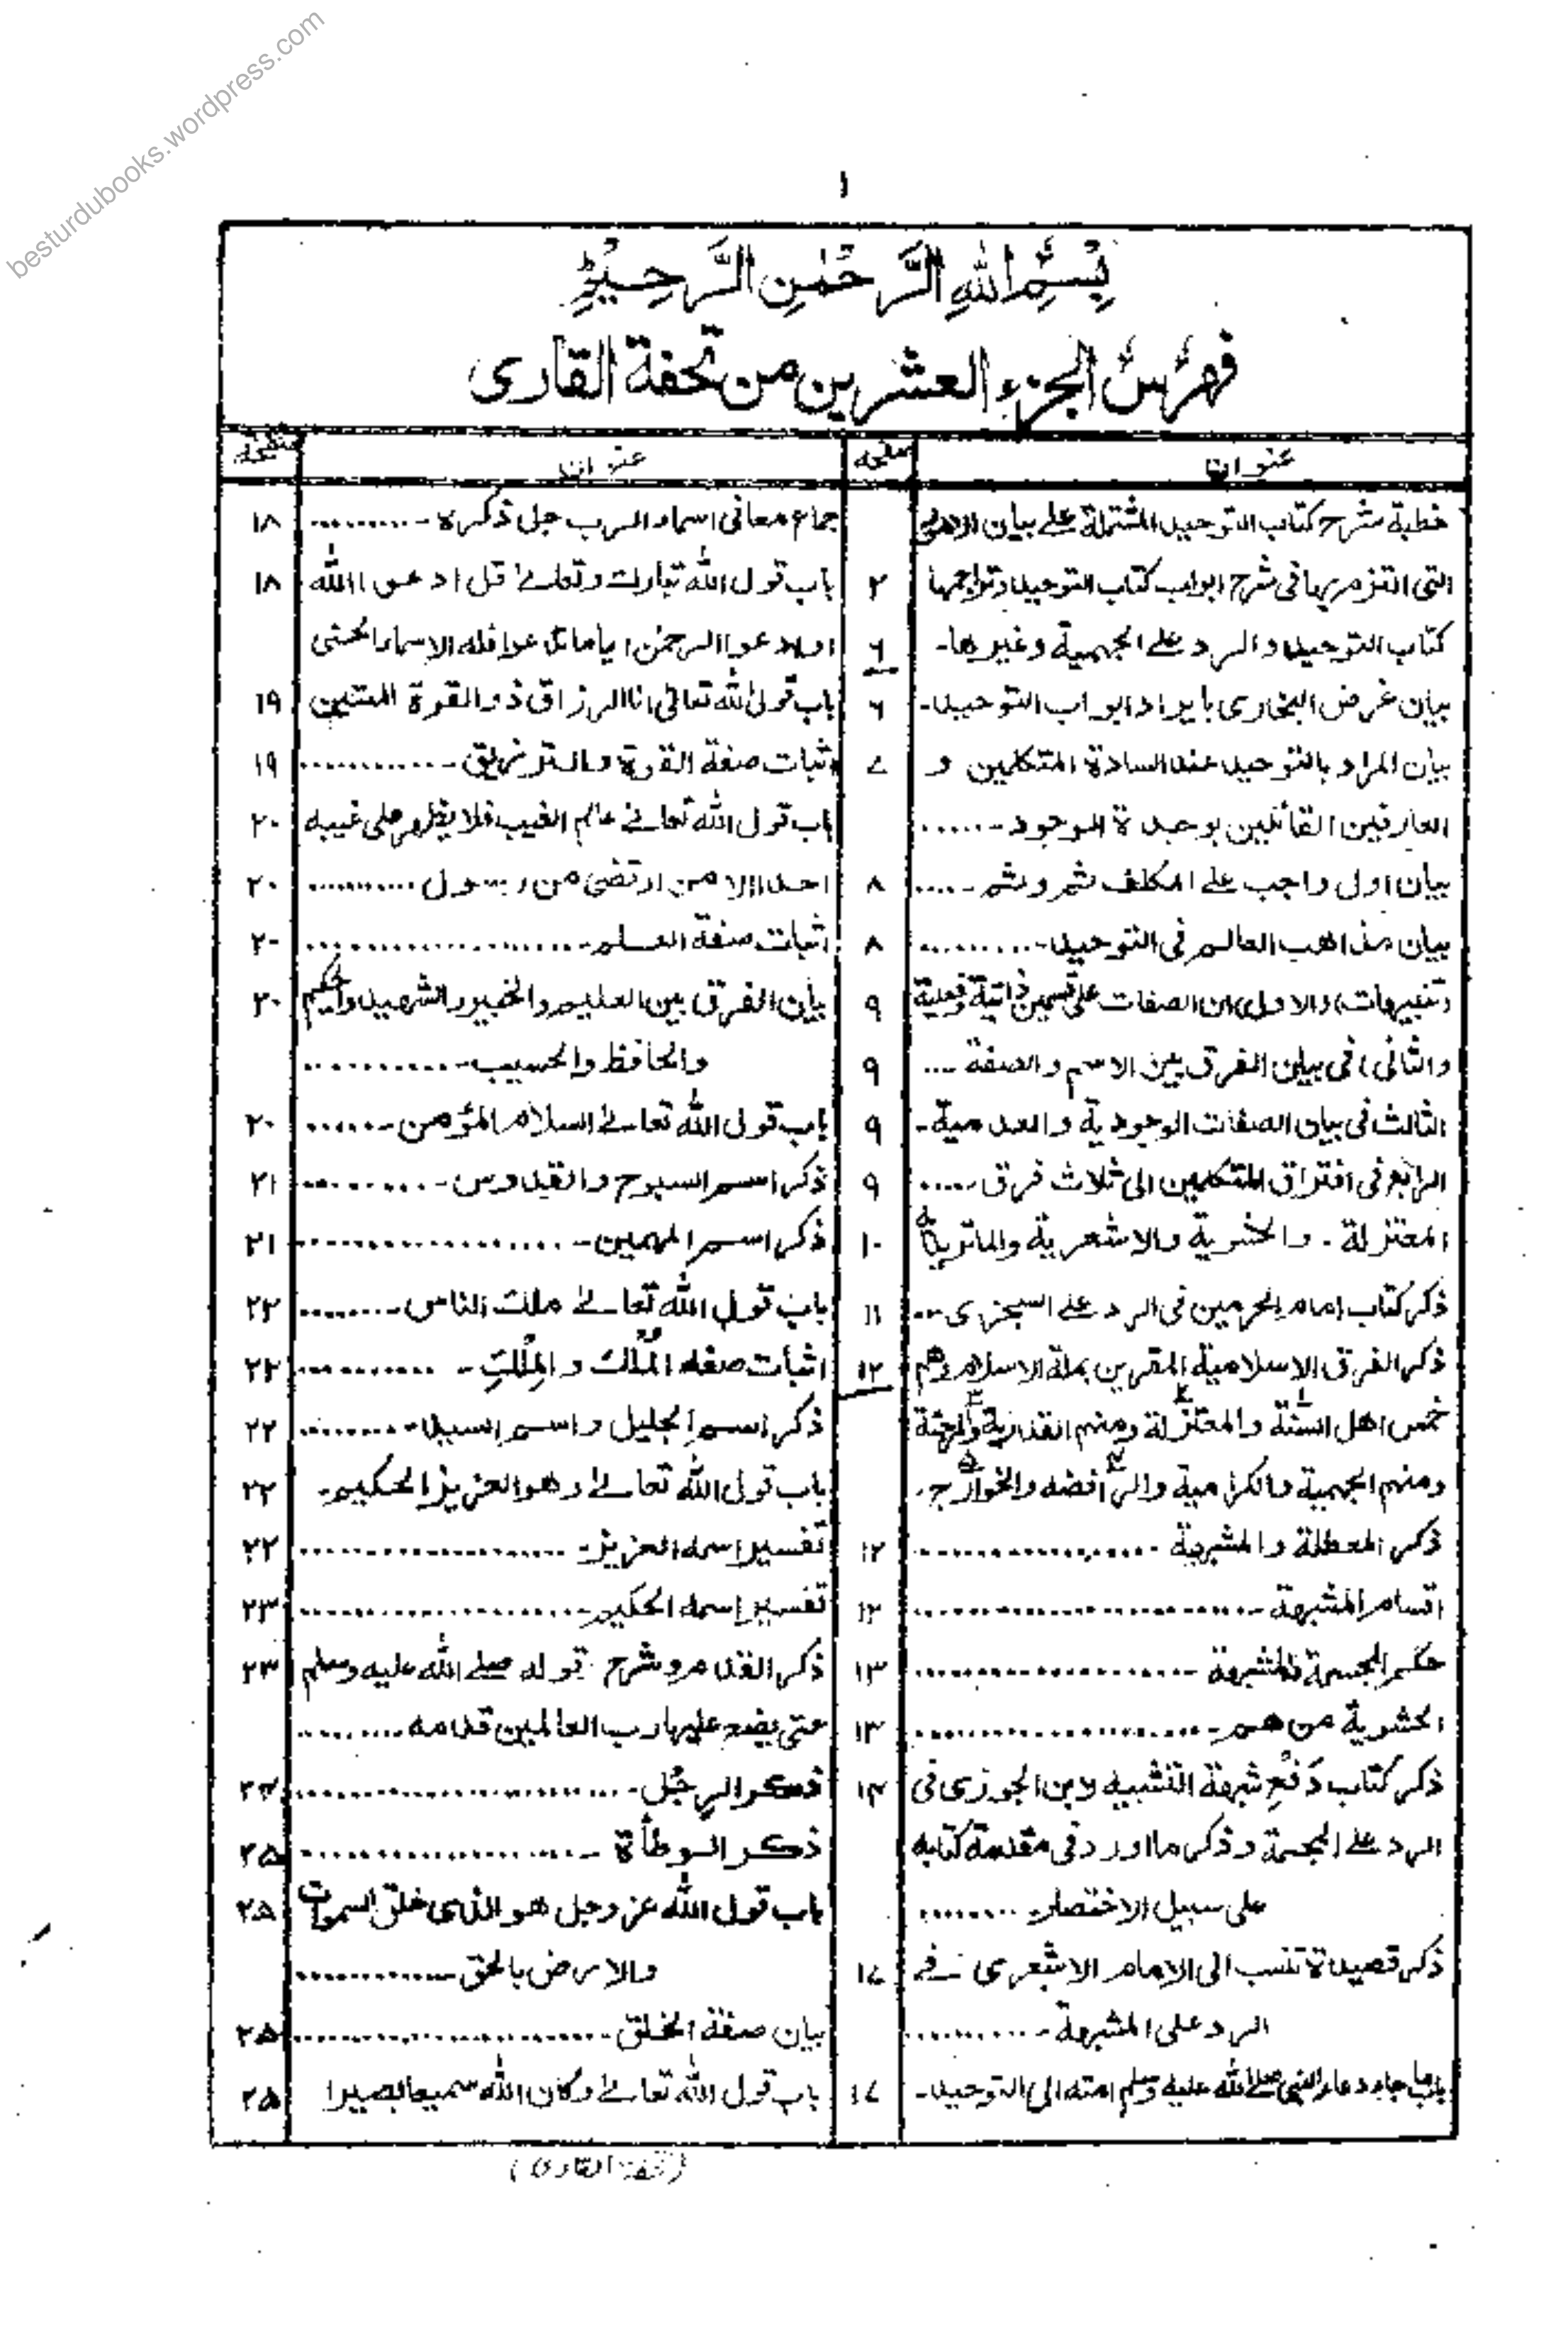 besturdubooks.wordpress.com
١
بِسْمِ اللهِ الرَّحْمٰنِ الرَّحِيْمِ
فهرس الجزء العشرين من تحفة القاری
عنوان
صفحه
خطبة شرح كتاب التوحيد المشتملة علے بيان الامور
التی التزم بها فی شرح ابواب كتاب التوحيد وتراجمها ۲
كتاب التوحيد والرد علے الجهمية وغيرها- ۶
بيان غرض البخاری بايراد ابواب التوحيد- ۶
بيان المراد بالتوحيد عند السادة المتكلمين و ۷
العارفين القائلين بوحدة الوجود-......
بيان اول واجب علے المكلف ثم وثم-.... ۸
بيان مذاهب العالم فی التوحيد-......... ۸
(تنبيهات) والاول ان الصفات علے قسمين ذاتية وفعلية ۹
والثانی) فی بيان الفرق بين الاسم والصفة ... ۹
الثالث فی بيان الصفات الوجودية والعدمية- ۹
الرابع فی افتراق المتكلمين الی ثلاث فرق-.... ۹
المعتزلة. والحشوية والاشعرية والماتريدية ۱۰
ذكر كتاب امام الحرمين فی الرد علے السجزی-.. ۱۱
ذكر الفرق الاسلامية المقرين بملة الاسلام وهم ۱۲
خمس اهل السنة والمعتزلة ومنهم القدرية والمرجئة
ومنهم الجهمية والكرامية والرافضه والخوارج.
ذكر المعطلة والمشبهة -.................. ۱۲
اقسام المشبهة-.......................... ۱۲
حكم المجسمة والمشبهة -..................... ۱۳
الحشوية من هم-...................... ۱۳
ذكر كتاب دَفْعِ شبهة التشبيه لابن الجوزی فی ۱۴
الرد علے المجسمة وذكر ما اورد فی مقدمة كتابه
علی سبيل الاختصار-........
ذكر قصيدة تنسب الی الامام الاشعری فے ۱۷
الرد علی المشبهة-..........
باب ما جاء دعاء النبی صلے الله عليه وسلم امته الی التوحيد- ۱۷
عنوان
صفحه
جماع معانی اسماء الرب جل ذكره-......... ۱۸
باب قول الله تبارك وتعالے قل ادعوا الله ۱۸
او ادعوا الرحمٰن ايا ما تدعوا فله الاسماء الحسنی
باب قول الله تعالی انا الرزاق ذو القوة المتين ۱۹
اثبات صفة القوة والترزيق-............ ۱۹
باب قول الله تعالے عالم الغيب فلا يظهر علی غيبه ۲۰
احدا الا من ارتضی من رسول .......... ۲۰
اثبات صفة العلم-..................... ۲۰
بيان الفرق بين العليم والخبير والشهيد والحكيم ۲۰
والحافظ والحسيب-...........
باب قول الله تعالے السلام المؤمن-...... ۲۰
ذكر اسم السبوح والقدوس-.......... ۲۱
ذكر اسم المهيمن-...................... ۲۱
باب قول الله تعالے ملك الناس-........ ۲۲
اثبات صفه المُلْك والمِلْكِ-........... ۲۲
ذكر اسم الجليل واسم السيد-......... ۲۲
باب قول الله تعالے وهو العزيز الحكيم- ۲۲
تفسير اسمه العزيز-..................... ۲۲
تفسير اسمه الحكيم-...................... ۲۳
ذكر القدم وشرح قوله صلے الله عليه وسلم ۲۳
حتی يضع عليها رب العالمين قدمه........
ذكر الرِجْل-......................... ۲۴
ذكر الوطأة-...................... ۲۵
باب قول الله عز وجل هو الذی خلق السموات ۲۵
والارض بالحق-............
بيان صفة الخلق-........................ ۲۵
باب قول الله تعالے وكان الله سميعا بصيرا ۲۵
(تحفة القاری)